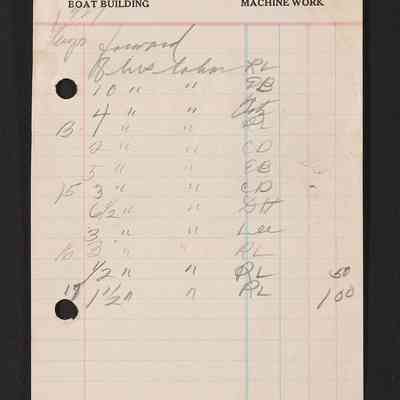 BOAT BUILDING MACHINE WORK
forward
8 hrs labor RL
10 " " EB
4 " "
13 4 " " RL
2 " " CD
5 " " EB
15 3 " " CD
6 1/2 " " GH
3 " " Lee
16 3 " " RL
1/2 " " RL 50
17 1 1/2 " " RL 1 00